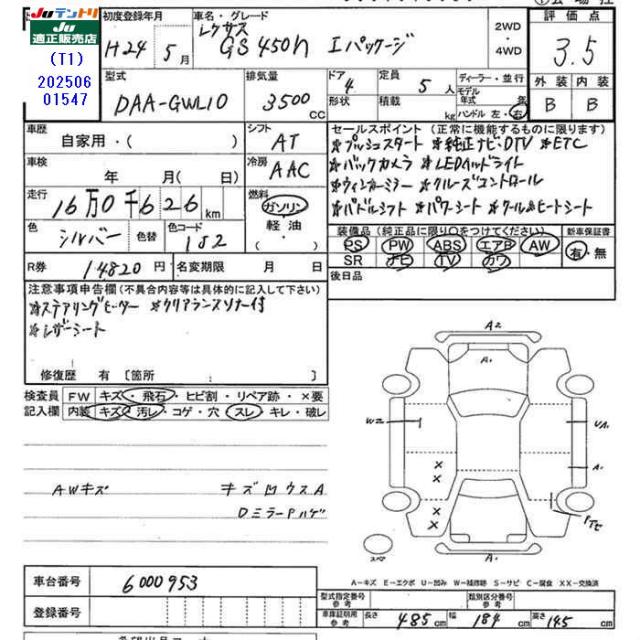 Juテントリ
Ju
適正販売店
(T1)
202506
01547
初度登録年月
H24年 5月
車名・グレード
レクサス
GS450h Iパッケージ
2WD
・
4WD
評価点
3.5
外装 内装
B B
型式
DAA-GWL10
排気量
3500 CC
ドア
4
形状
定員
5 人
積載
kg
ディーラー・並行
モデル年式 年
ハンドル 左・右
車歴
自家用・( )
シフト
AT
車検
年 月( 日)
冷房
AAC
走行
16万0千626 km
燃料
ガソリン
軽油
色
シルバー
色替
色コード
1J2
R券
14820円
名変期限 月 日
セールスポイント(正常に機能するものに限ります)
*プッシュスタート *純正ナビ・DTV *ETC
*バックカメラ *LEDヘッドライト
*ウィンカーミラー *クルーズコントロール
*パドルシフト *パワーシート *クール&ヒートシート
装備品(純正品に限り○をつけてください)
PS PW ABS エアB AW
SR ナビ TV カワ
新車保証書
有・無
後日品
注意事項申告欄(不具合内容等は具体的に記入して下さい)
*ステアリングヒーター *クリアランスソナー付
*レザーシート
修復歴 有 〔箇所 〕
検査員
記入欄
FW キズ・飛石・ヒビ割・リペア跡・×要
内装 キズ・汚レ・コゲ・穴・スレ・キレ・破レ
AWキズ
キズ凹ウスA
DミラーPハゲ
A2
A1
W2
UA1
A1
スペア
A-キズ E-エクボ U-凹み W-補修跡 S-サビ C-腐食 XX-交換済
車台番号
6000953
登録番号
型式指定番号
参考
類別区分番号
参考
車庫証明用
参考
長さ 485cm 幅 184cm 高さ 145cm